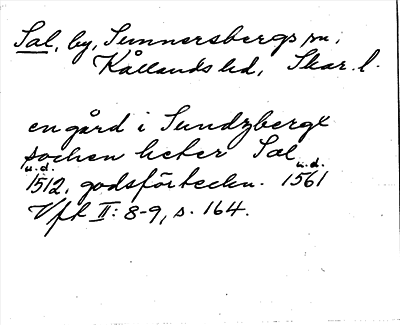 Sal, by, Sunnersbergs sn.
Kållands hd, Skar. l.
en gård i Sundzbergx
sochen heter Sal
u.d. u.d.
1512, godsförteckn. 1561
Vft II: 8-9, s. 164.